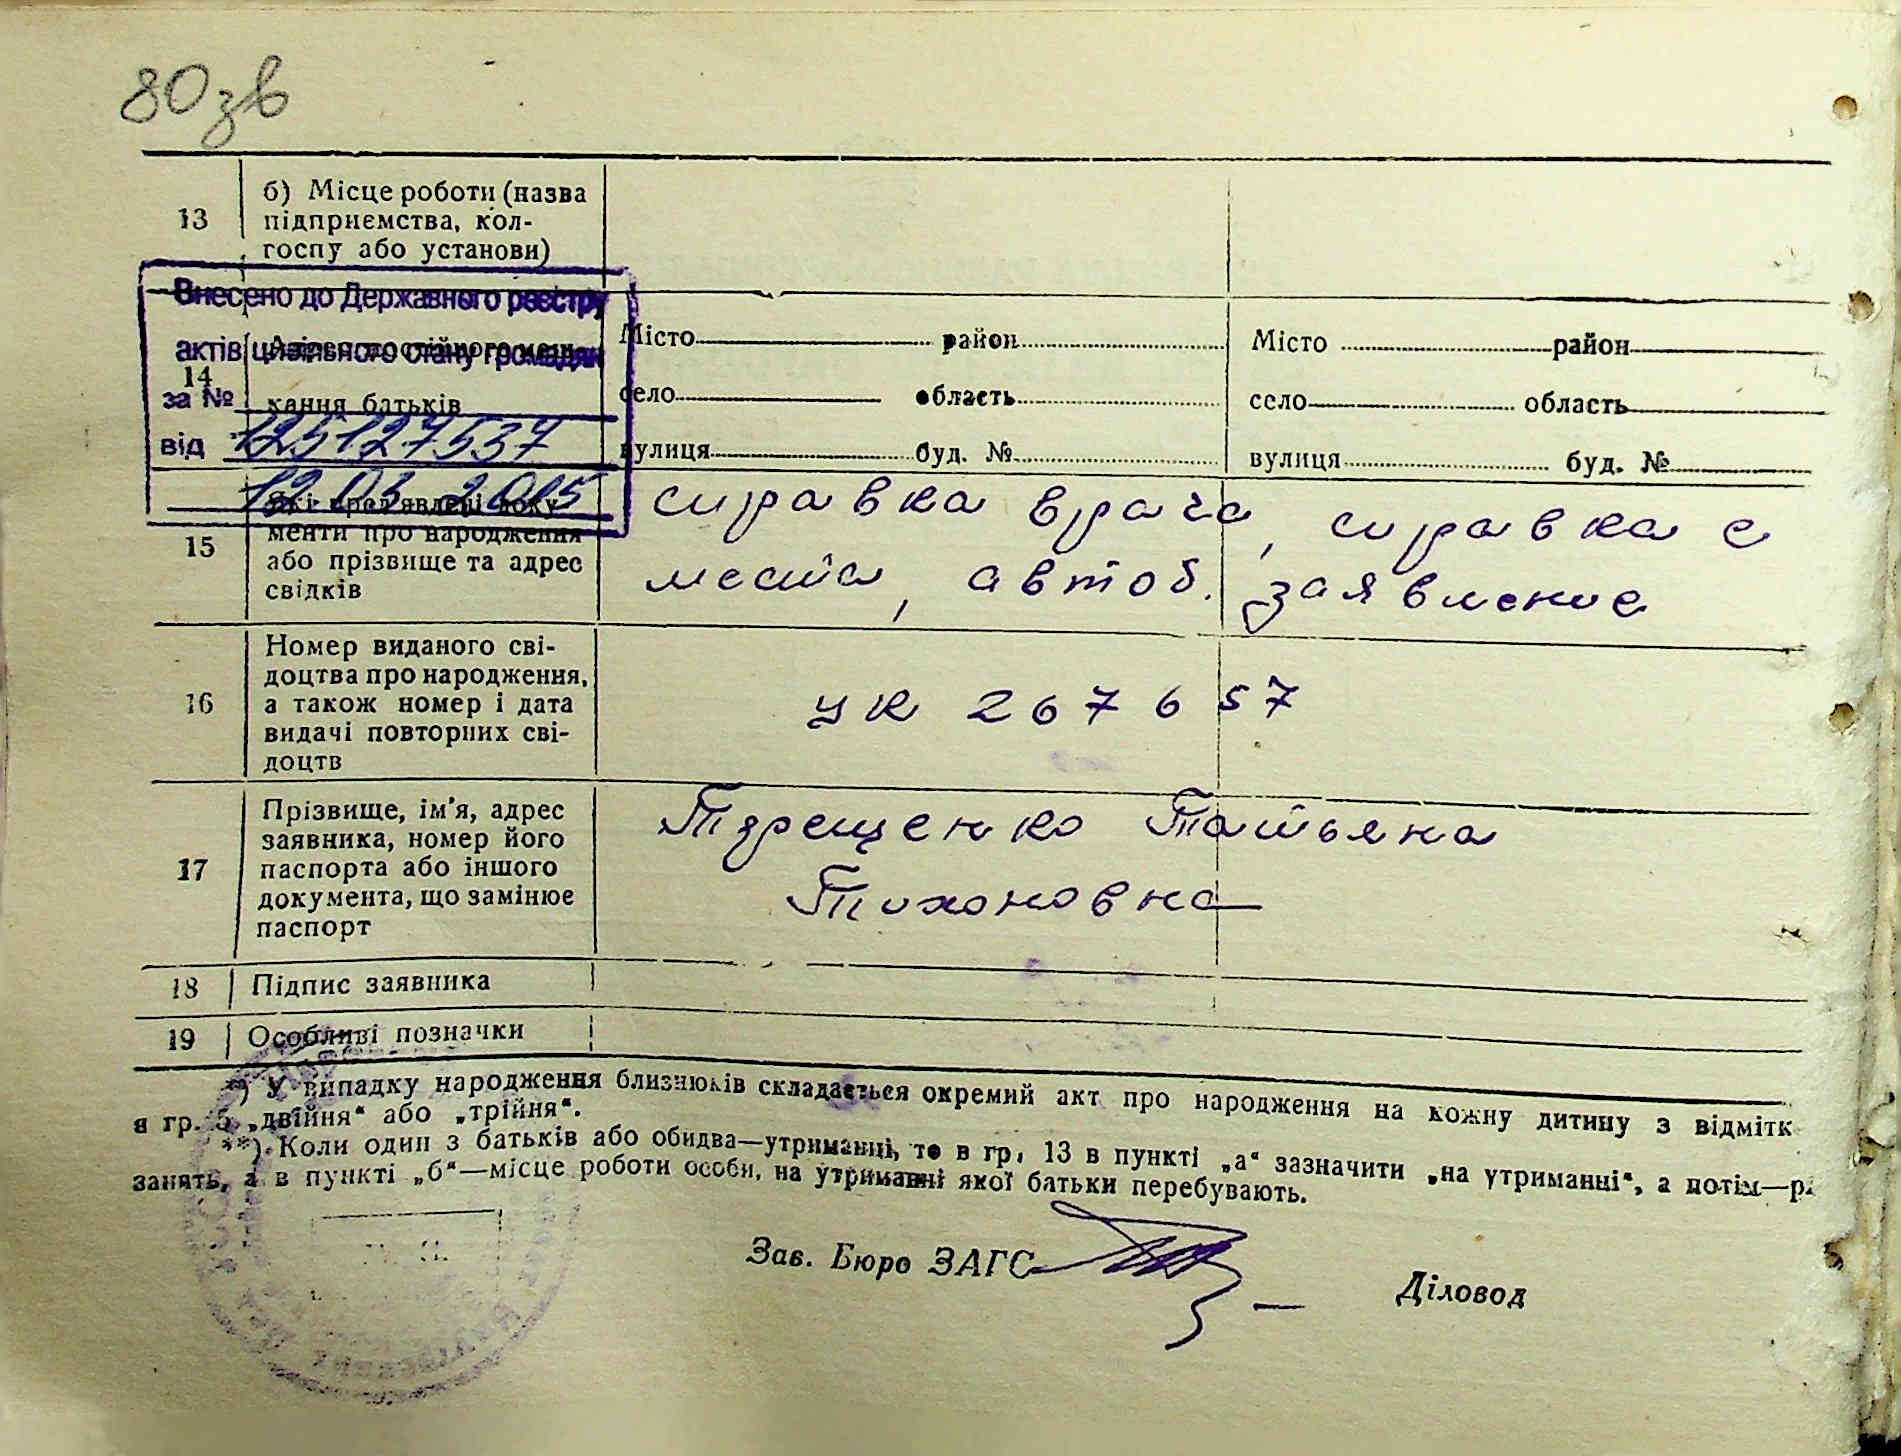 80 зв
13
б) Місце роботи (назва
підприємства, кол-
госпу або установи)
Внесено до Державного реєстру
актів цивільного стану громадян
за №
від 125127537
12 03 2015
14
кання батьків
Місто район
село область
вулиця буд. №
Місто район
село область
вулиця буд. №
15
Які пред'явлені доку-
менти про народження
або прізвище та адрес
свідків
справка врача, справка с
места, автоб. заявление
16
Номер виданого сві-
доцтва про народження,
а також номер і дата
видачі повторних сві-
доцтв
УК 267657
17
Прізвище, ім'я, адрес
заявника, номер його
паспорта або іншого
документа, що замінює
паспорт
Терещенко Татьяна
Тихоновна
18 Підпис заявника
19 Особливі позначки
*) У випадку народження близнюків складається окремий акт про народження на кожну дитину з відмітк
в гр. 5 „двійня“ або „трійня“.
**) Коли один з батьків або обидва—утриманці, то в гр. 13 в пункті „а“ зазначити „на утриманні“, а потім—р
занять, а в пункті „б“—місце роботи особи, на утриманні якої батьки перебувають.
Зав. Бюро ЗАГС
Діловод